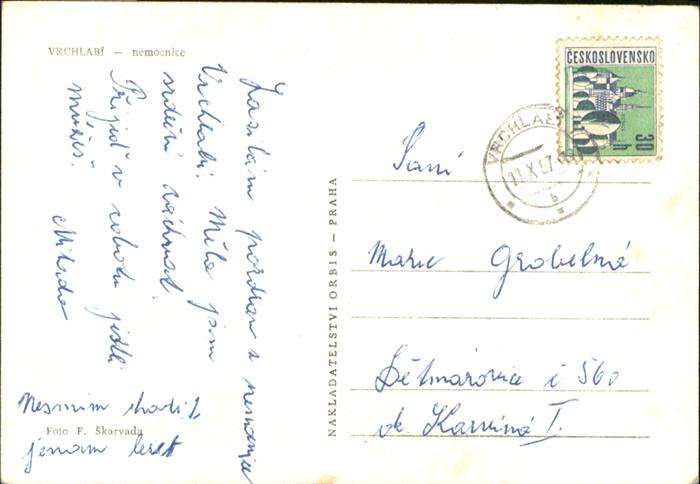 VRCHLABÍ — nemocnice
Zasílám pozdrav z nemocnice
Vrchlabí. Měla jsem
srdeční záchvat.
Přijeď v sobotu jestli
můžeš.
Milada
Nesmím chodit
jenom ležet
Foto F. Škarvada
NAKLADATELSTVÍ ORBIS — PRAHA
ČESKOSLOVENSKO
30
h
VRCHLABÍ
11.X.67
b
Paní
Marie Grobelná
Dětmarovice č 560
ok. Karviná I.